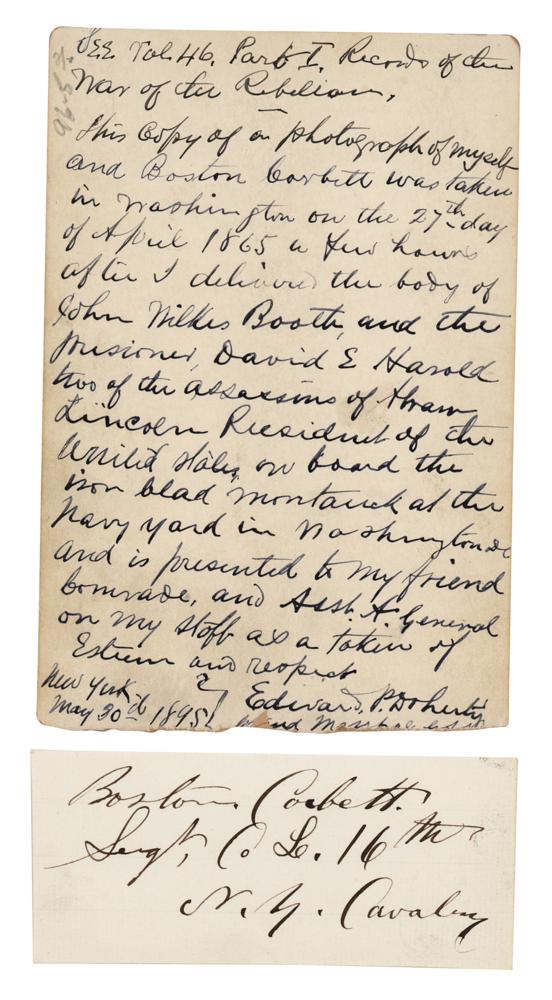 SEE Vol. 46. Part I. Records of the
War of the Rebelion,
This Copy of a photograph of myself
and Boston Corbett was taken
in Washington on the 27th day
of April 1865 a few hours
after I delivered the body of
John Wilkes Booth, and the
prisioner, David E Harold
two of the assassins of Abram
Lincoln President of the
United States, on board the
iron clad Montauk at the
Navy yard in Washington DC
and is presented to my friend
Comrade, and Asst. A. General
on my Staff as a token of
Esteem and respect
New York
May 30d 1895
Edward. P. Doherty
Grand Marshal
Boston. Corbett.
Sergt, Co L. 16th
N. Y. Cavalry